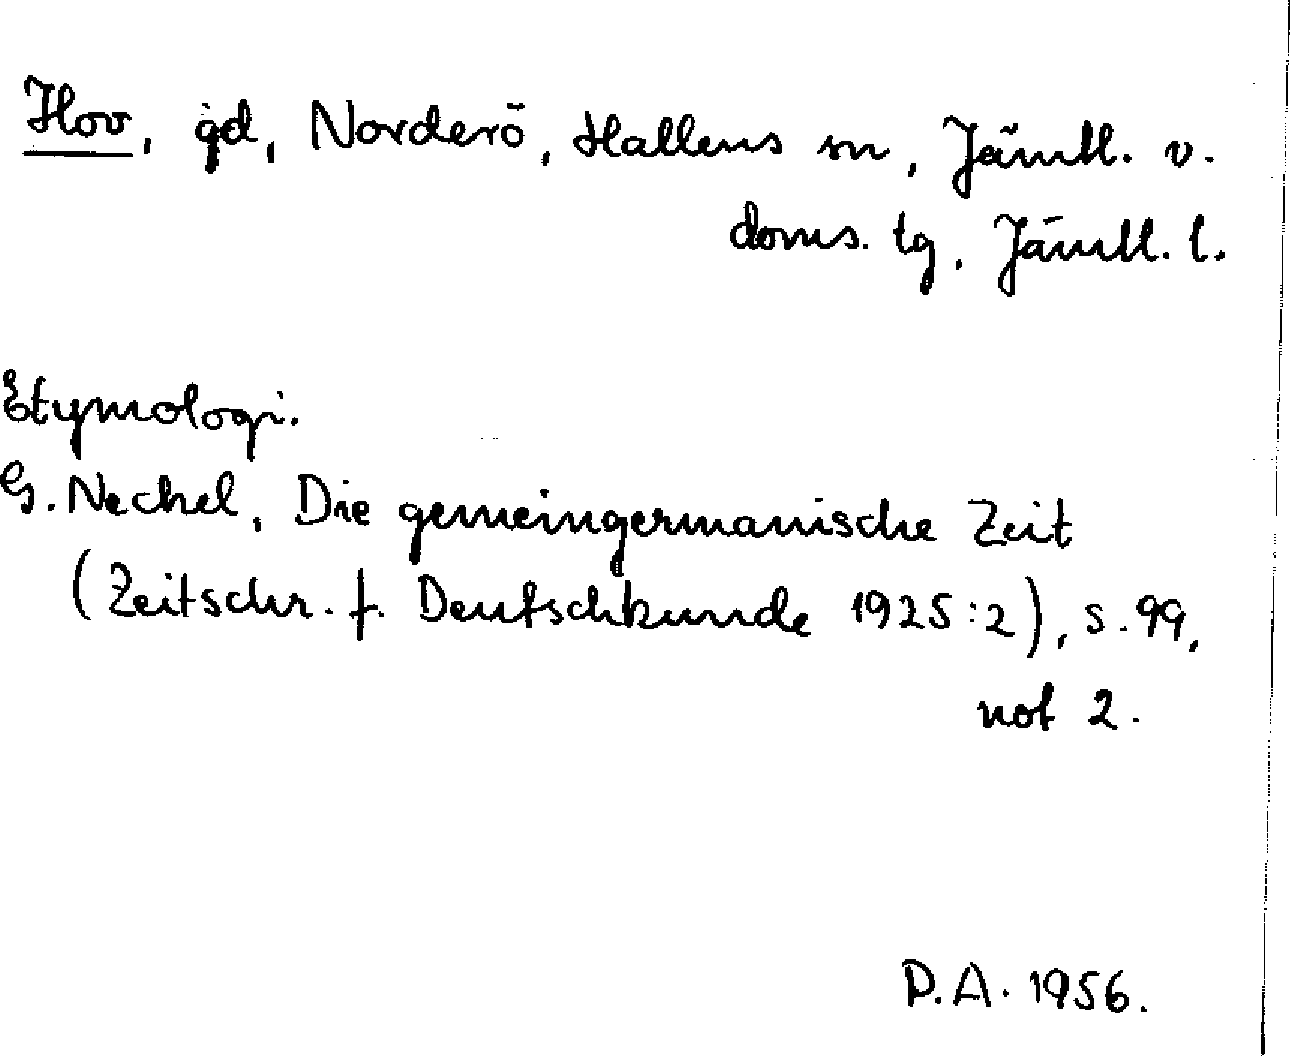 Hov, gd, Norderö, Hallens sn, Jämtl. v.
doms. tg, Jämtl. l.
Etymologi.
G. Neckel, Die gemeingermanische Zeit
(Zeitschr. f. Deutschkunde 1925:2), s. 99,
not 2.
D.A. 1956.